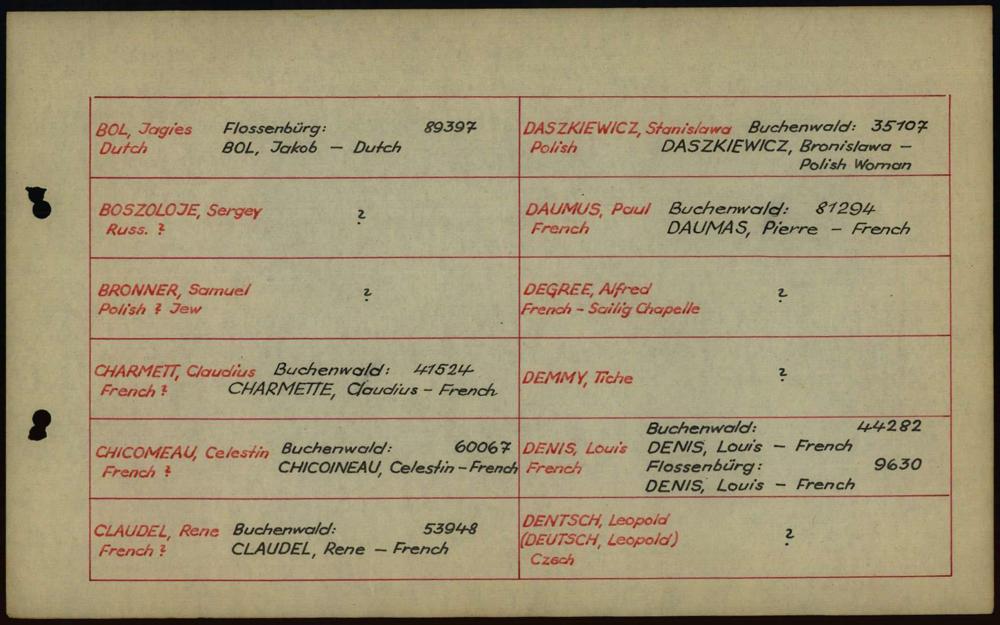 BOL, Jagies Flossenbürg: 89397
Dutch BOL, Jakob – Dutch
BOSZOLOJE, Sergey ?
Russ. ?
BRONNER, Samuel ?
Polish ? Jew
CHARMETT, Claudius Buchenwald: 41524
French ? CHARMETTE, Claudius – French
CHICOMEAU, Celestin Buchenwald: 60067
French ? CHICOINEAU, Celestin – French
CLAUDEL, Rene Buchenwald: 53948
French ? CLAUDEL, Rene – French
DASZKIEWICZ, Stanislawa Buchenwald: 35107
Polish DASZKIEWICZ, Bronislawa –
Polish Woman
DAUMUS, Paul Buchenwald: 81294
French DAUMAS, Pierre – French
DEGREE, Alfred ?
French – Sailig Chapelle
DEMMY, Tiche ?
Buchenwald: 44282
DENIS, Louis DENIS, Louis – French
French Flossenbürg: 9630
DENIS, Louis – French
DENTSCH, Leopold
(DEUTSCH, Leopold) ?
Czech